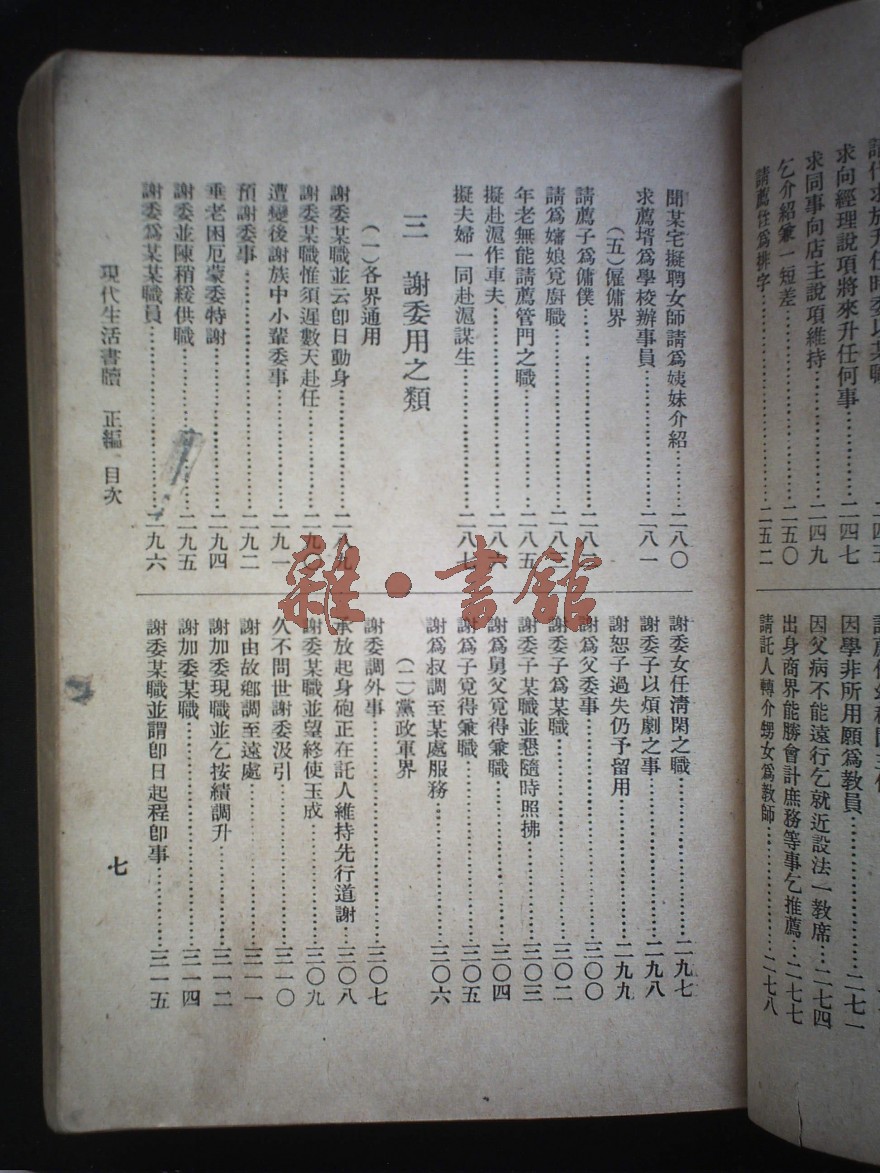 求向經理說項將來升任何事……二四七
求同事向店主說項維持……二四九
乞介紹兼一短差……二五〇
請薦姪爲排字……二五二
因學非所用願爲教員……二七一
因父病不能遠行乞就近設法一教席…二七四
出身商界能勝會計庶務等事乞推薦…二七七
請託人轉介甥女爲教師……二七八
聞某宅擬聘女師請爲姨妹介紹……二八〇
求薦壻爲學校辦事員……二八一
(五)僱傭界
請薦子爲傭僕……二八二
請爲嬸娘覓廚職……二八三
年老無能請薦管門之職……二八五
擬赴滬作車夫……二八六
擬夫婦一同赴滬謀生……二八七
三 謝委用之類
(一)各界通用
謝委某職並云卽日動身……二八九
謝委某職惟須遲數天赴任……二九〇
遭變後謝族中小輩委事……二九一
預謝委事……二九二
垂老困厄蒙委特謝……二九四
謝委並陳稍緩供職……二九五
謝委爲某某職員……二九六
謝委女任淸閑之職……二九七
謝委子以煩劇之事……二九八
謝恕子過失仍予留用……二九九
謝爲父委事……三〇〇
謝委子爲某職……三〇二
謝委子某職並懇隨時照拂……三〇三
謝爲舅父覓得兼職……三〇四
謝爲子覓得兼職……三〇五
謝爲叔調至某處服務……三〇六
(二)黨政軍界
謝委調外事……三〇七
承放起身砲正在託人維持先行道謝…三〇八
謝委某職並望終使玉成……三〇九
久不問世謝委汲引……三一〇
謝由故鄉調至遠處……三一一
謝加委現職並乞按績調升……三一二
謝加委某職……三一四
謝委某職並謂卽日起程卽事……三一五
現代生活書牘 正編 目次
七
雜·書館